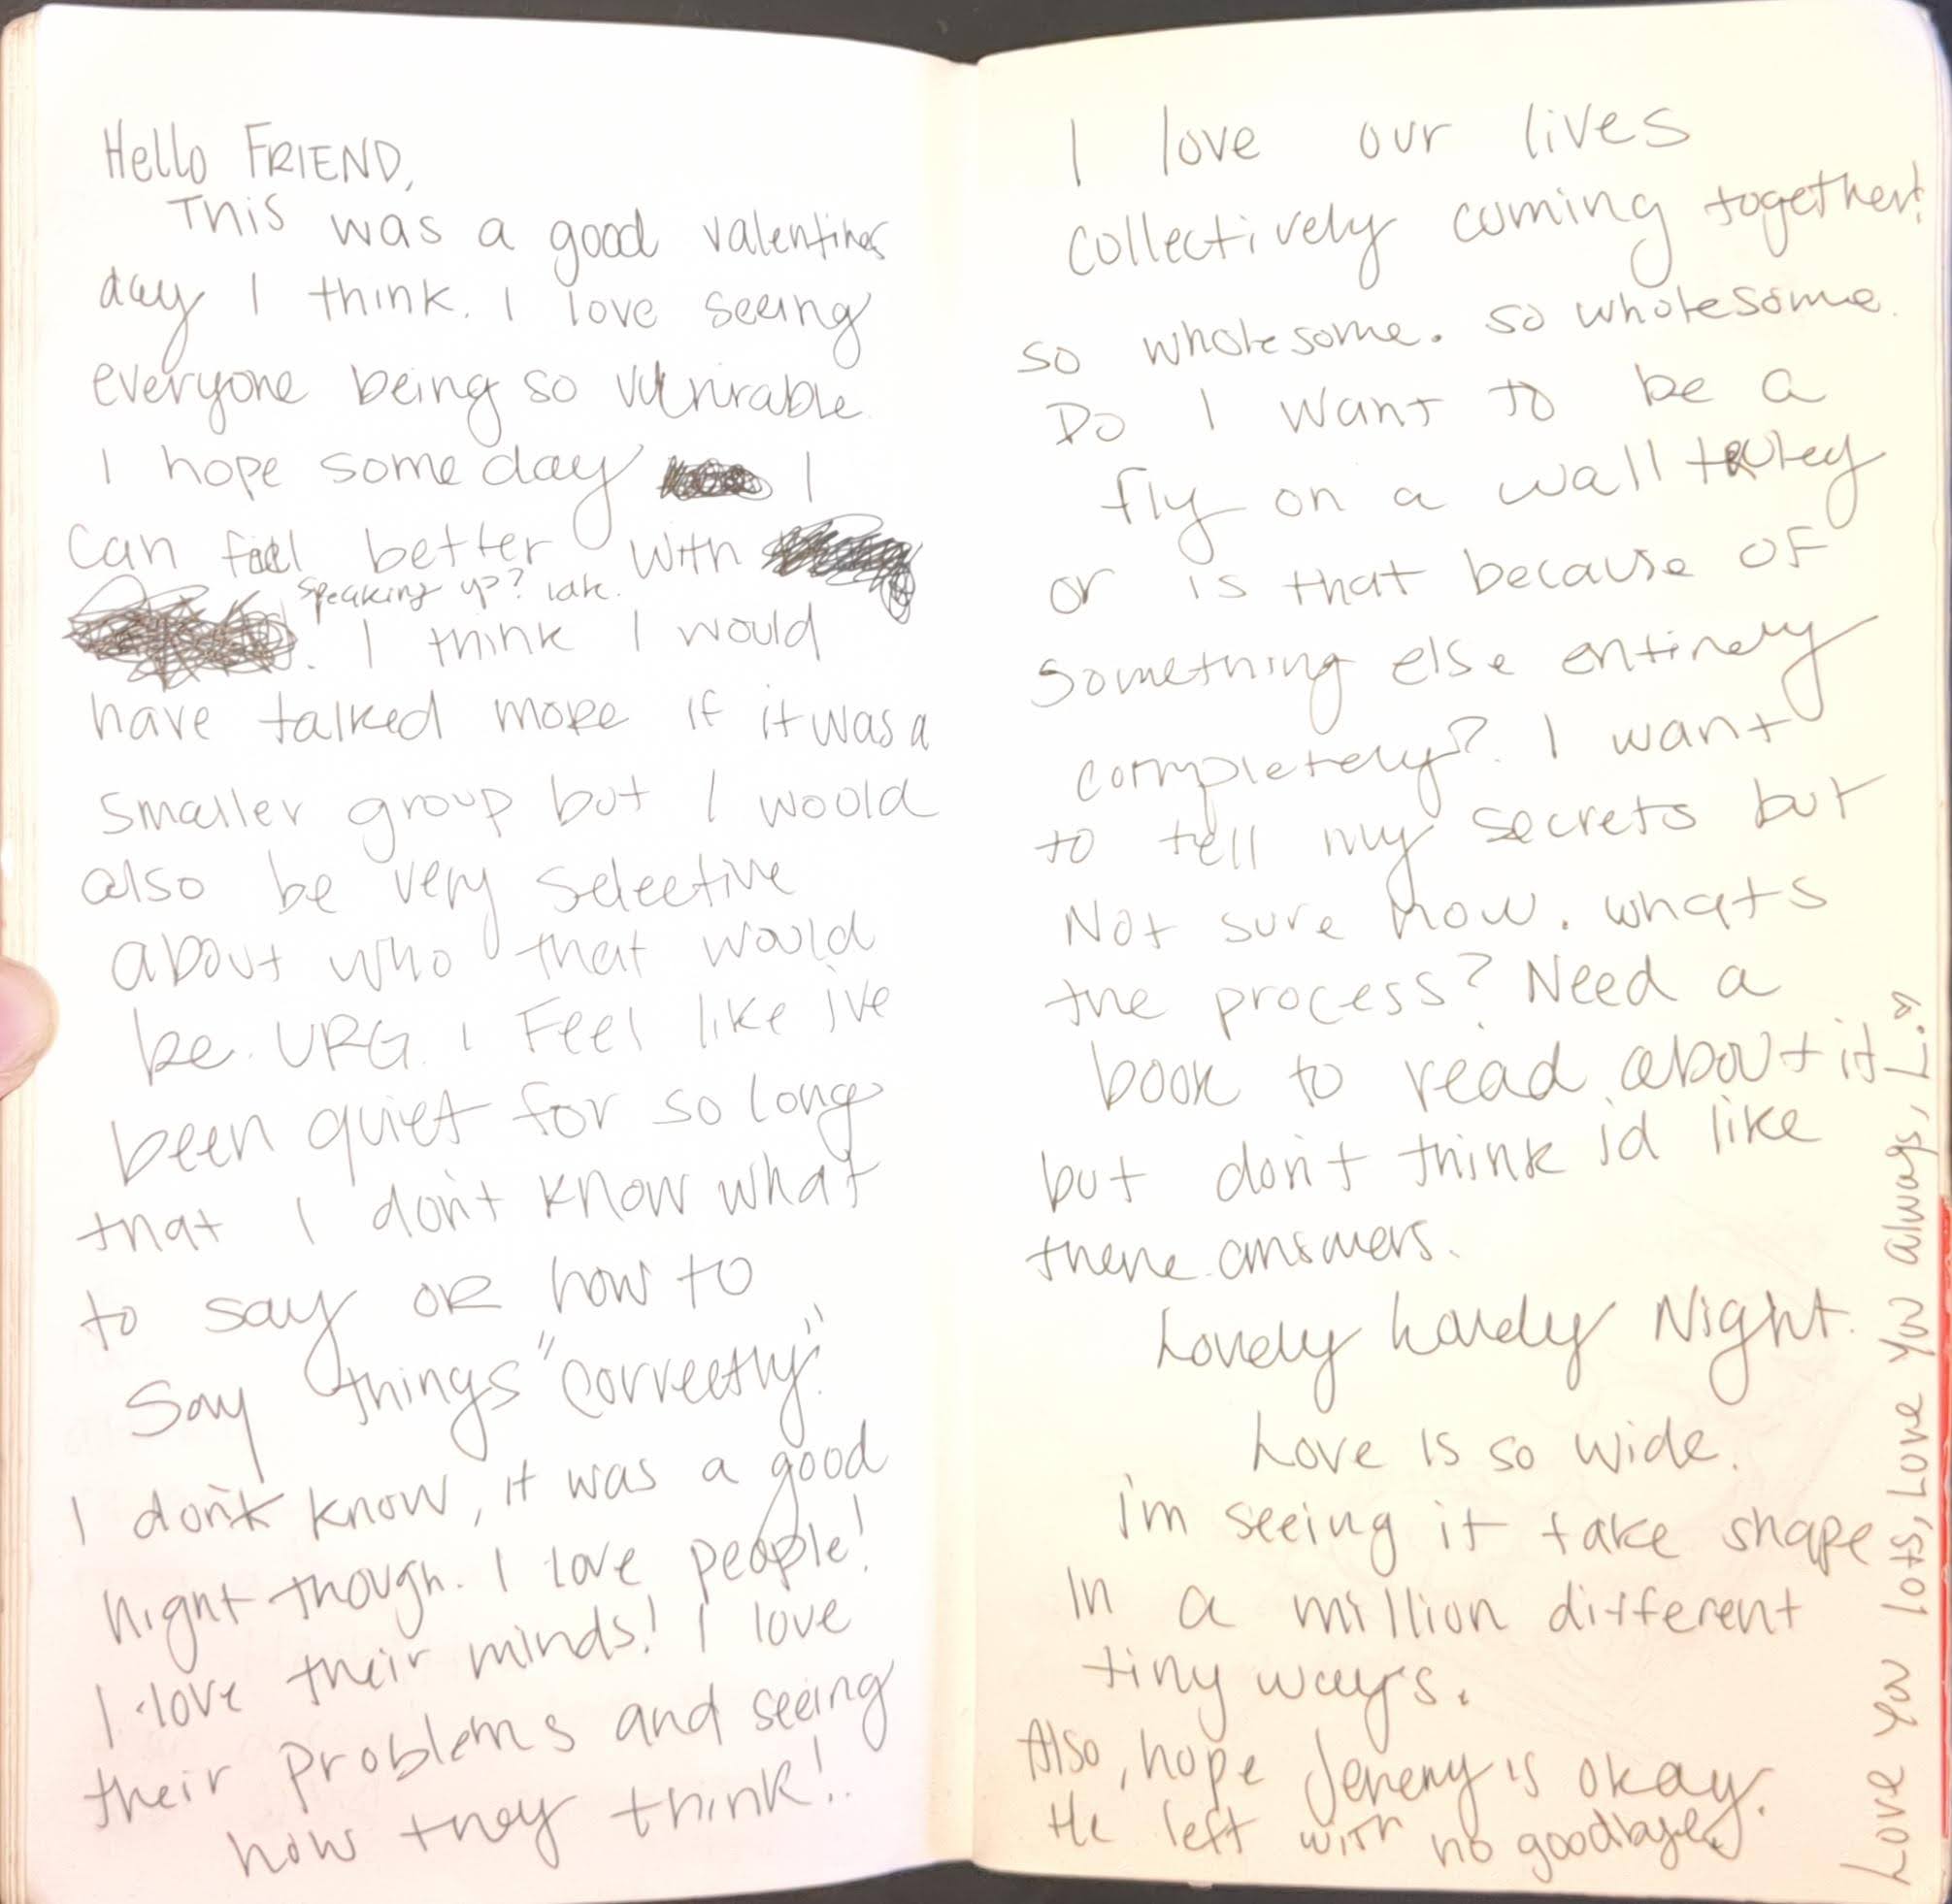 Hello FRIEND,
This was a good valentines
day I think. I love seeing
everyone being so vulnrable
I hope some day I
can feel better with
speaking up? idk.
. I think I would
have talked more if it was a
smaller group but I would
also be very selective
about who that would
be. URG. I Feel like ive
been quiet for so long
that I don't know what
to say OR how to
say things "correctly."
I don't know, it was a good
night though. I love people!
I love their minds! I love
their problems and seeing
how they think!
I love our lives
collectively coming together!
so wholesome. so wholesome.
Do I want to be a
fly on a wall truley
or is that because OF
something else entirely
completely? I want
to tell my secrets but
Not sure how. whats
the process? Need a
book to read about it
but don't think id like
there answers.
Lovely Lovely Night.
Love is so wide.
i'm seeing it take shape
In a million different
tiny ways.
Also, hope Jeremy is okay.
He left with no goodbyes
Love you lots, Love you always, L.